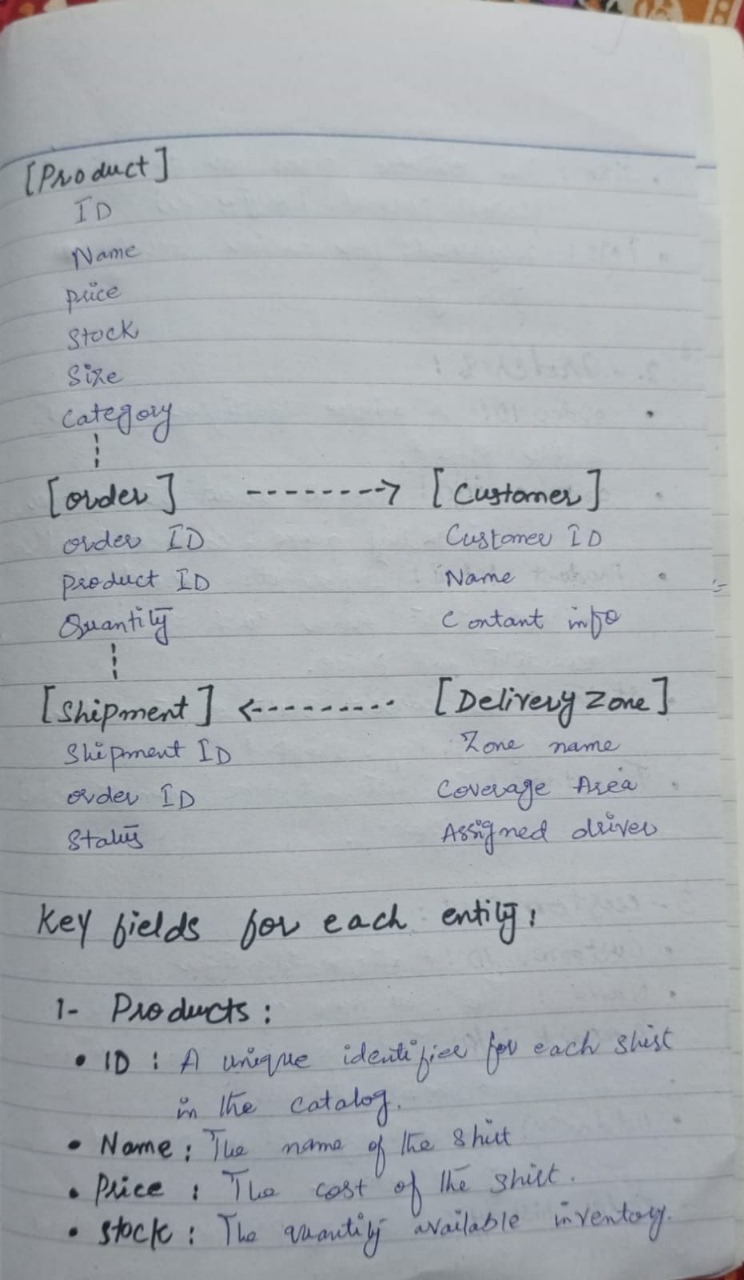 [Product]
ID
Name
price
Stock
Size
Category
[order] --------> [Customer]
order ID Customer ID
product ID Name
Quantity Contant info
[Shipment] <--------- [Delivery Zone]
Shipment ID Zone name
order ID Coverage Area
Status Assigned driver
Key fields for each entity:
1- Products:
• ID : A unique identifier for each shirt
in the catalog.
• Name : The name of the shirt
• Price : The cost of the shirt.
• Stock : The quantity available inventory.